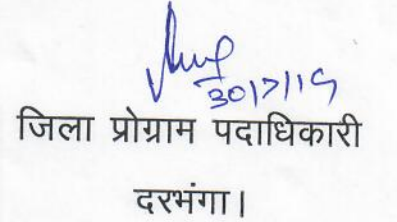 30/7/19
जिला प्रोग्राम पदाधिकारी
दरभंगा।